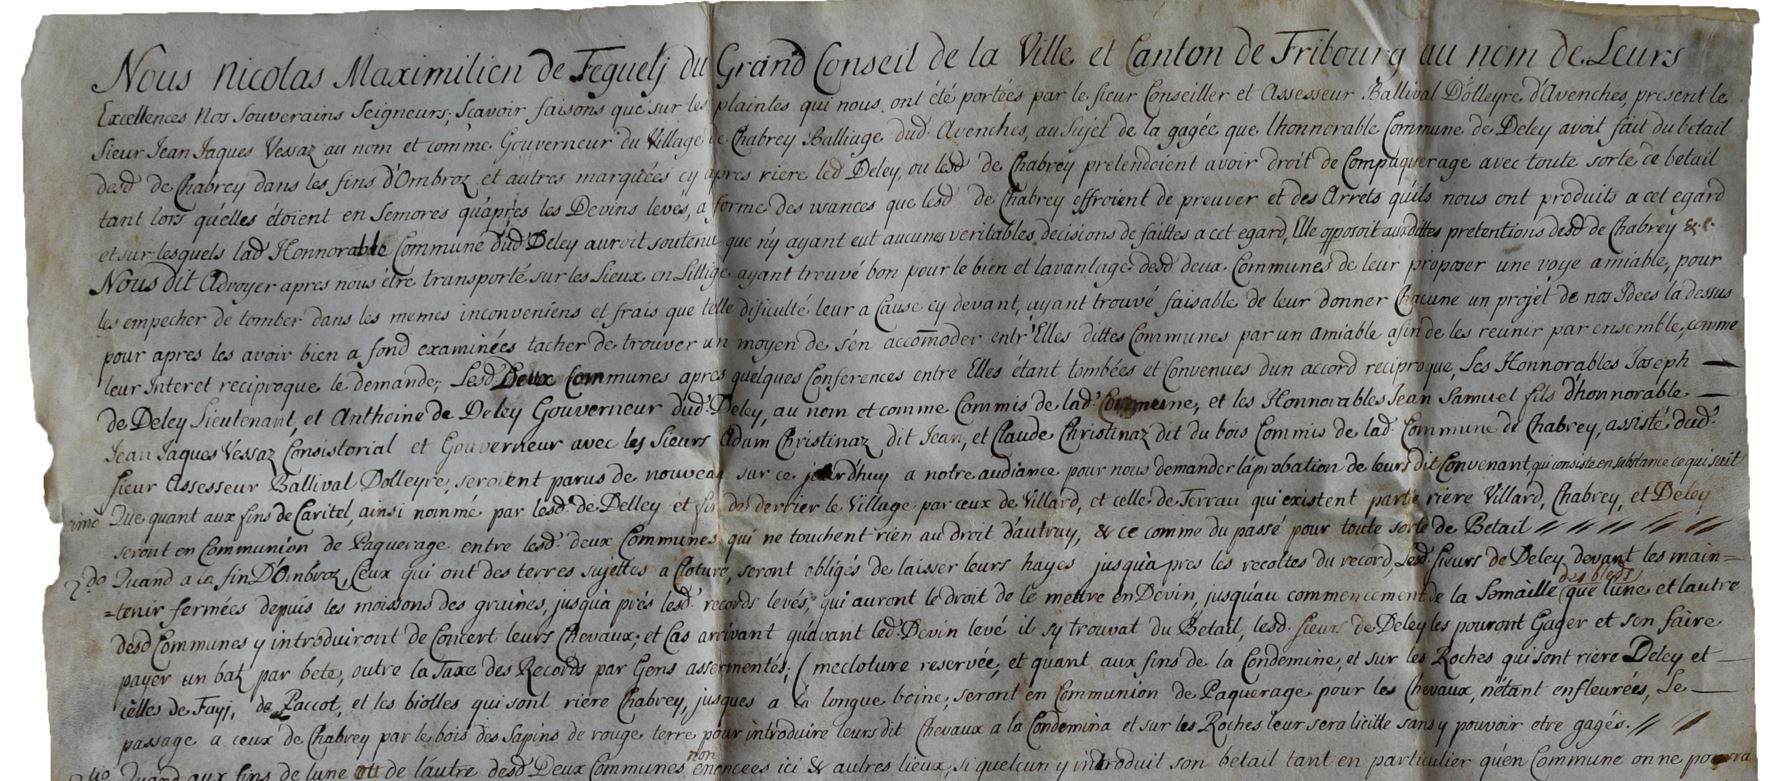 Nous Nicolas Maximilien de Feguelj du Grand Conseil de la Ville et Canton de Fribourg au nom de Leurs
Excellences Nos Souverains Seigneurs; Scavoir faisons que sur les plaintes qui nous ont été portées par le Sieur Conseiller et Assesseur Ballival D'olleyre d'Avenches, present le
Sieur Jean Jaques Vessaz au nom et comme Gouverneur du Village de Chabrey Balliage dud. Avenches, au Sujet de la gagée que l'honnorable Commune de Deley avoit fait du betail
desd. de Chabrey dans les fins d'Ombroz et autres marquées cy apres riere led Deley, ou lesd. de Chabrey pretendoient avoir droit de Compaquerage avec toute sorte de betail
tant lors qu'elles étoient en Semores qu'après les Devins levés, a forme des usances que lesd. de Chabrey offroient de preuver et des Arrets qu'ils nous ont produits a cet egard
et sur lesquels lad Honnorable Commune dud Deley auroit soutenu que n'y ayant eut aucunes veritables decisions de faittes a cet egard, Elle opposoit auxdittes pretentions desd de Chabrey &.c.
Nous dit Advoyer apres nous être transporté sur les Lieux en Littige ayant trouvé bon pour le bien et lavantage desd deux Communes de leur proposer une voye amiable, pour
les empecher de tomber dans les memes inconveniens et frais que telle dificulté leur a Cause cy devant, ayant trouvé faisable de leur donner Chacune un projet de nos Idees la dessus
pour apres les avoir bien a fond examinées tacher de trouver un moyen de s'én accom̄oder entr'Elles dittes Communes par un amiable afin de les reunir par ensemble, comme
leur Interet reciproque le demande; Lesd. Deux Communes apres quelques Conferences entre Elles étant tombées et Convenues dun accord reciproque, Les Honnorables Joseph
de Deley Lieutenant, et Anthoine de Deley Gouverneur dud. Deley, au nom et comme Commis de lad. Commune, et les Honnorables Jean Samuel fils d'honnorable
Jean Jaques Vessaz Consistorial et Gouverneur avec les Sieurs Adam Christinaz dit Jean, et Claude Christinaz dit du bois Commis de lad. Commune de Chabrey, assisté dud.
Sieur Assesseur Ballival Dolleyre, seroient parus de nouveau sur ce jourdhuy a notre audiance pour nous demander láprobation de leurs dit Convenant, qui consiste en substance ce qui suit
Que quant aux fins de Caritel, ainsi nommé par lesd. de Delley et fin de derrier le Village par ceux de Villard, et celle de Terrau qui existent partie riere Villard, Chabrey, et Deley
seront en Communion de Paquerage entre lesd. deux Communes qui ne touchent rien au droit d'autruy, & ce comme du passé pour toute sorte de Betail
2.do Quand a la fin D'Ombroz, Ceux qui ont des terres sujettes a Cloture, seront obligés de laisser leurs hayes jusqu'a pres les recoltes du record, Lesd. Sieurs de Deley devant les main=
=tenir fermées depuis les moissons des graines, jusqu'a prés lesd. records levés, qui auront le droit de lé mettre en Devin, jusqu'au commencement de la Somaille (des bleds) que l'une et lautre
desd Communes y introduiront de Concert leurs Chevaux; et Cas arrivant qu'avant led. Devin levé il sy trouvat du Betail, lesd. Sieurs de Deley les pouront Gager et sen faire
payer un batz par bete, outre la Taxe des Records par Gens assermentés; (mecloture reservée, et quant aux fins de la Condemine, et sur les Roches qui sont riere Deley et
celles de Fayj, de Paccot, et les biolles qui sont riere Chabrey, jusques a la longue boine, seront en Communion de Paquerage pour les Chevaux, n'étant enfleurées, Le
passage a ceux de Chabrey par le bois des Sapins de rouge terre pour introduire leurs dit Chevaux a la Condemina et sur les Roches leur sera licitte sans y pouvoir etre gagés.
Quand aux fins de lune ou de lautre desd. Deux Communes non enoncees ici & autres lieux, si quelcun y introduit son betail tant en particulier qu'en Commune on ne pourra